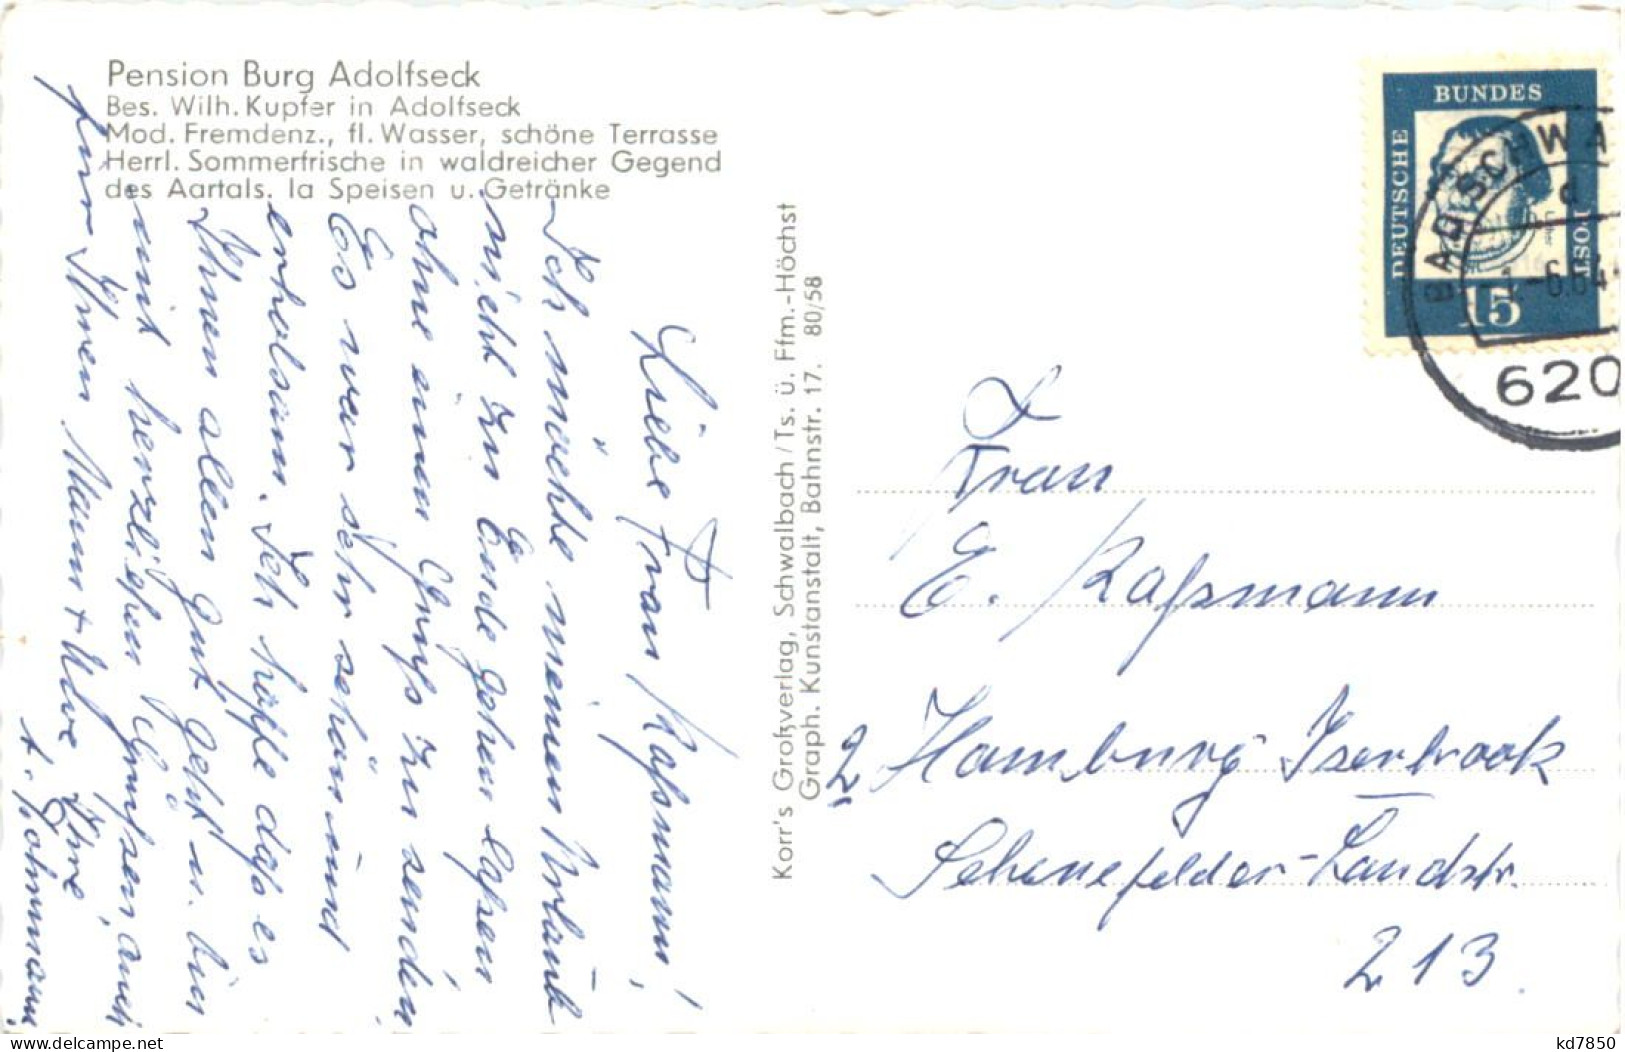 Pension Burg Adolfseck
Bes. Wilh. Kupfer in Adolfseck
Mod. Fremdenz., fl. Wasser, schöne Terrasse
Herrl. Sommerfrische in waldreicher Gegend
des Aartals. Ia Speisen u. Getränke
Liebe Frau Kaßmann!
Ich möchte meinen Urlaub
nicht zu Ende gehen laßen
ohne einen Gruß zu senden.
Es war sehr schön und
erholsam. Ich hoffe daß es
Ihnen allen gut geht u. bin
mit herzlichen Grüßen, auch
für Ihren Mann + Uwe Ihre
A. Rohmann
Korr's Großverlag, Schwalbach/Ts. ü. Ffm.-Höchst
Graph. Kunstanstalt, Bahnstr. 17. 80/58
DEUTSCHE
BUNDES
POST
15
BAD SCHWA
d
-6.64
620
Frau
E. Kaßmann
2 Hamburg Iserbrook
Schenefelder-Landstr.
213.
delcampe.net
kd7850